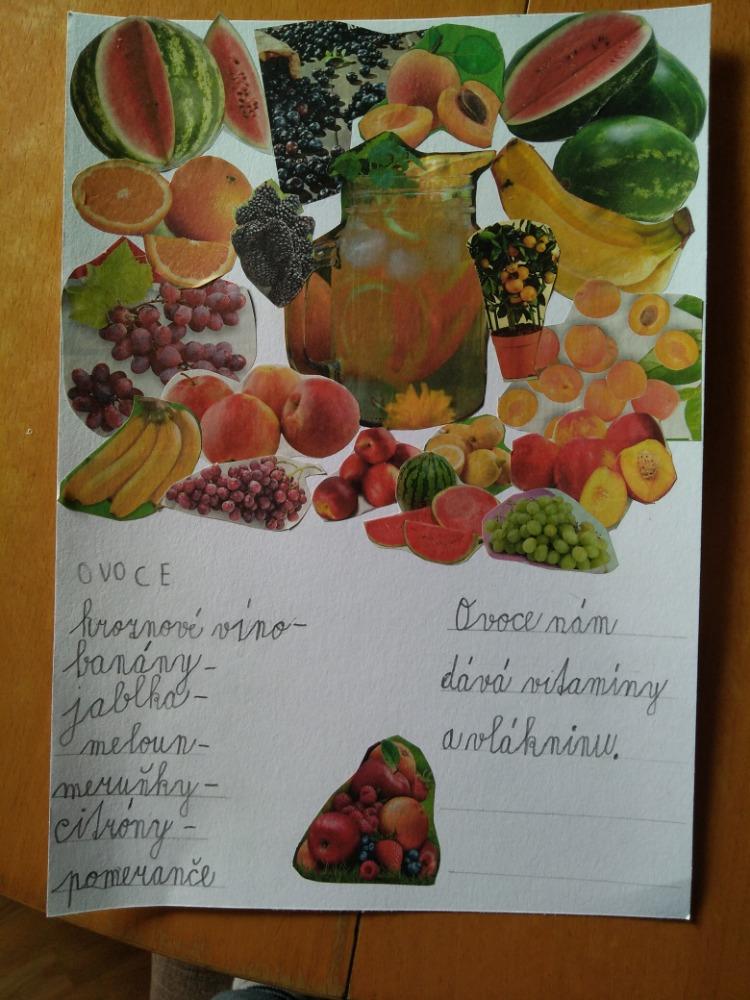 OVOCE
hroznové víno-
banány-
jablka-
meloun-
meruňky-
citróny-
pomeranče
Ovoce nám
dává vitamíny
a vlákninu.